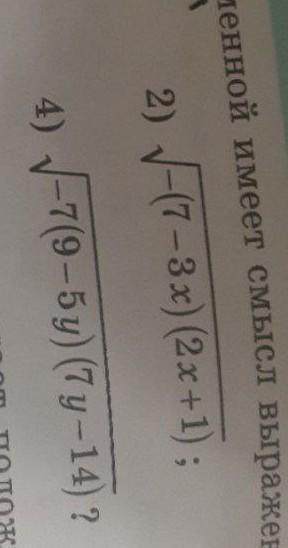 менной имеет смысл выражен
2) √−(7−3x)(2x+1);
4) √−7(9−5y)(7y−14)?